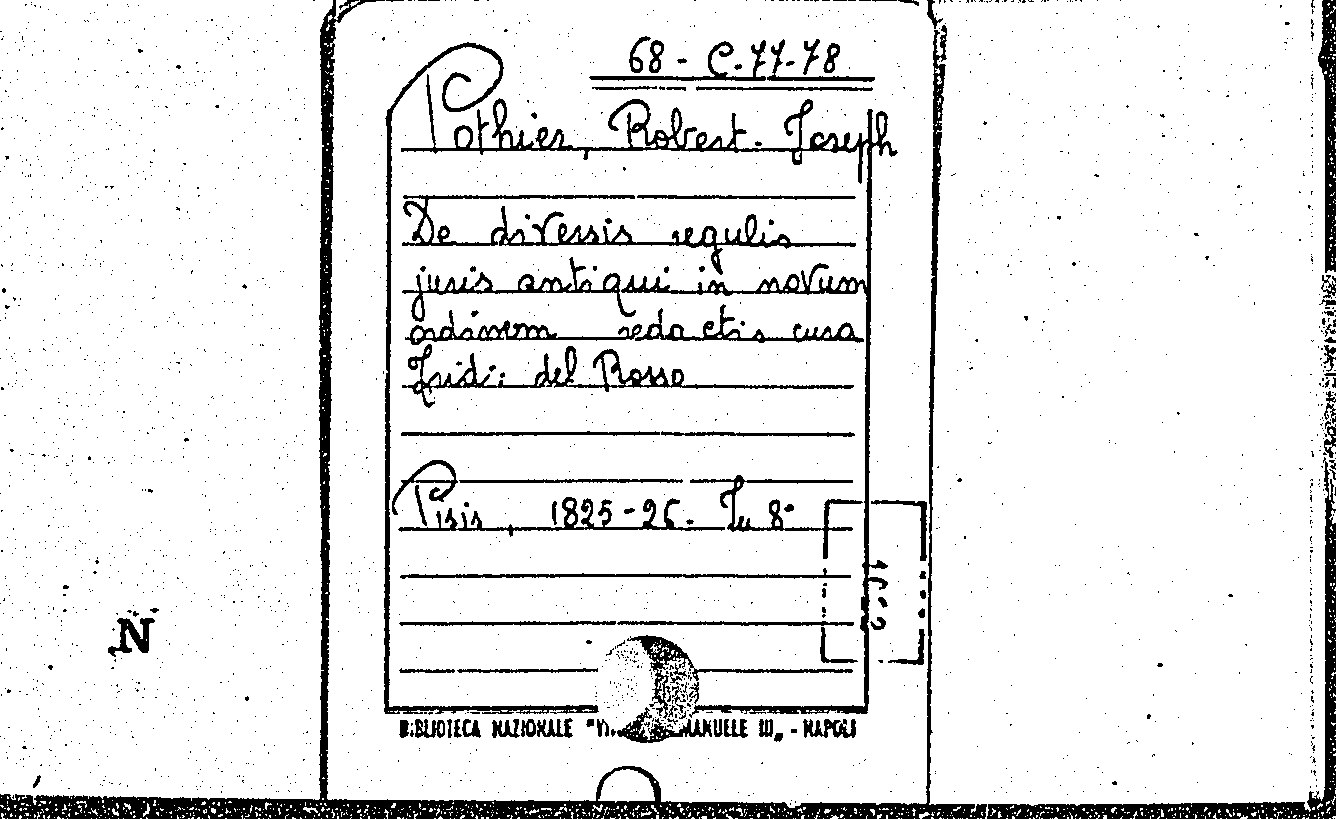 68 - C.77-78
Pothier, Robert-Joseph
De diversis regulis
juris antiqui in novum
ordinem redactis cura
Fridi: del Rosso
Pisis, 1825-26. In 8°
N
BIBLIOTECA NAZIONALE "MANUELE III„ - NAPOLI